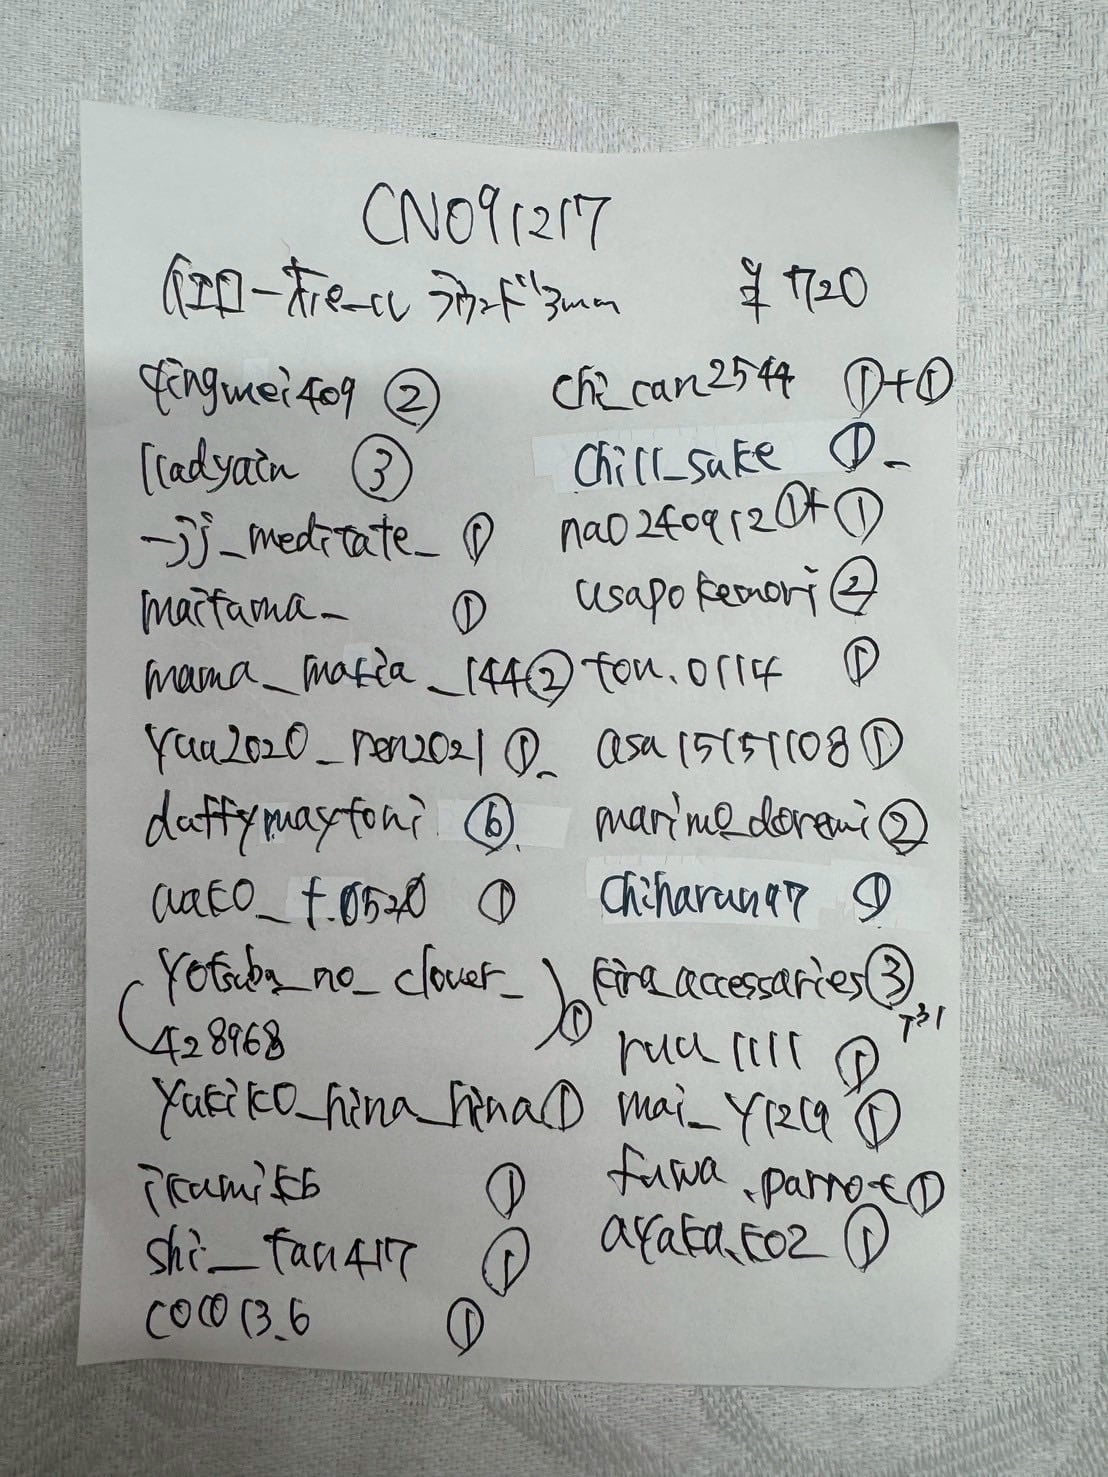 CN091217
イエローオパール ラウンド 3mm ¥720
qingmei409 ②
lladyain ③
-jj_meditate_ ①
maitama_ ①
mama_maria_144 ②
yaa2020_ren2021 ①
daffymayfoni ⑥
aako_t.0520 ①
yotsuba_no_clover_
428968 ①
yukiko_hina_hina ①
ikumikb ①
shi_tan417 ①
coco13_6 ①
chi_can2544 ①+①
chill_sake ①
nao240912 ①+①
usapokemori ②
ton.0114 ①
asa15151108 ①
marimo_doremi ②
chiharun97 ①
kira_accessaries ③
ruu1111 ①
mai_y1219 ①
fuwa.parrot ①
ayaka.k02 ①